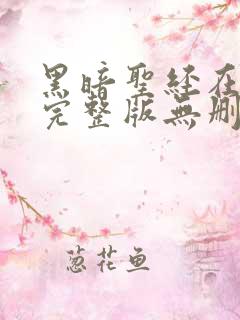 黑暗聖經在
完整版無刪
葱花鱼